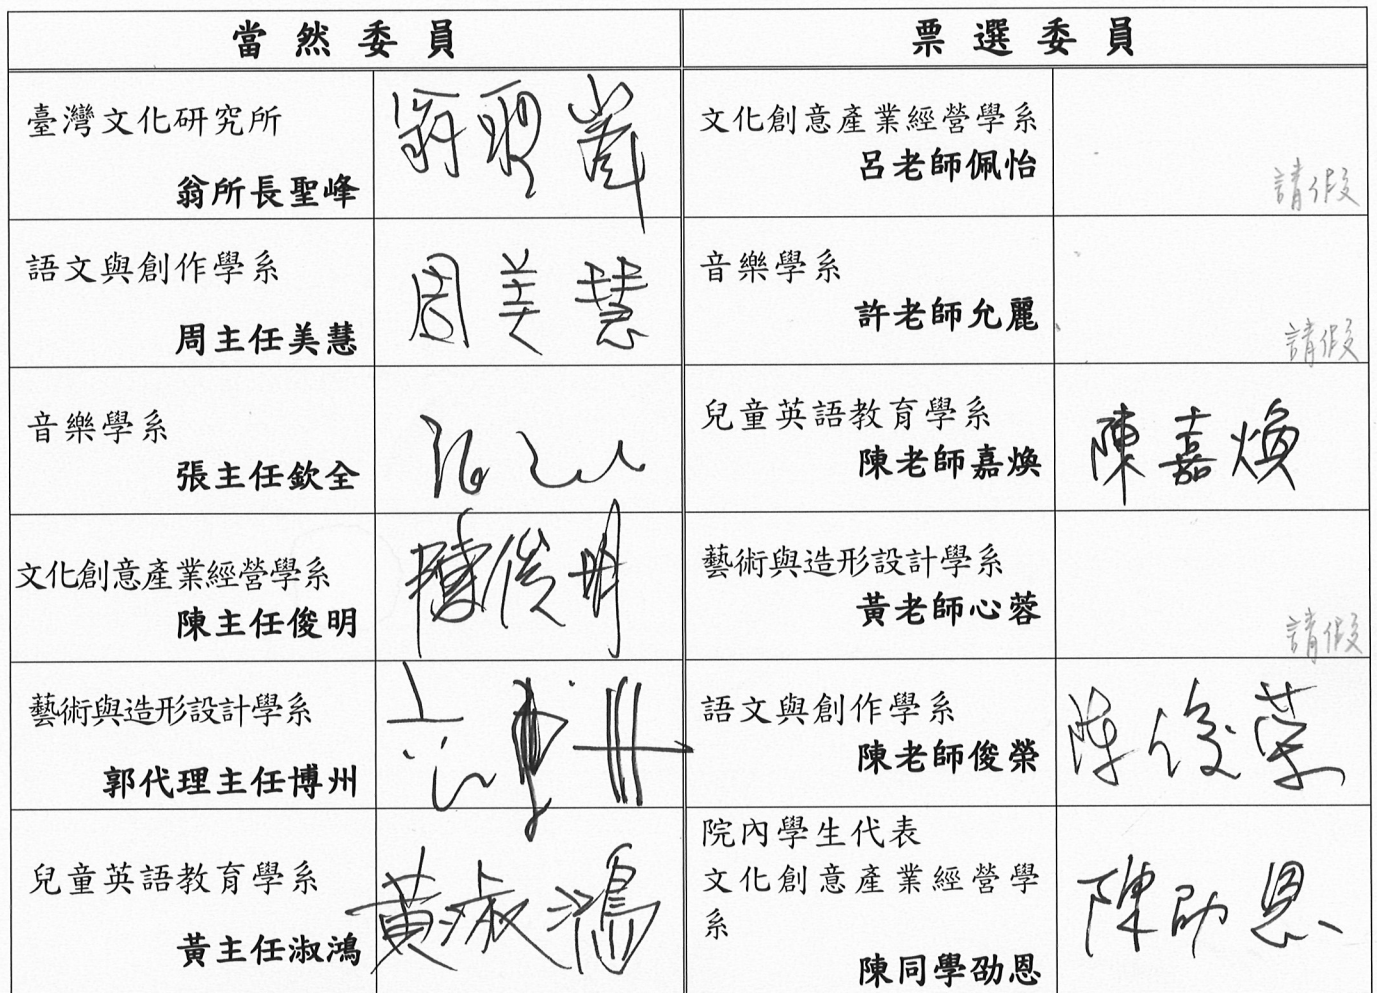 當然委員
票選委員
臺灣文化研究所
翁所長聖峰
翁聖峯
文化創意產業經營學系
呂老師佩怡
請假
語文與創作學系
周主任美慧
周美慧
音樂學系
許老師允麗
請假
音樂學系
張主任欽全
兒童英語教育學系
陳老師嘉煥
陳嘉煥
文化創意產業經營學系
陳主任俊明
陳俊明
藝術與造形設計學系
黃老師心蓉
請假
藝術與造形設計學系
郭代理主任博州
語文與創作學系
陳老師俊榮
陳俊榮
兒童英語教育學系
黃主任淑鴻
黃淑鴻
院內學生代表
文化創意產業經營學
系
陳同學劭恩
陳劭恩